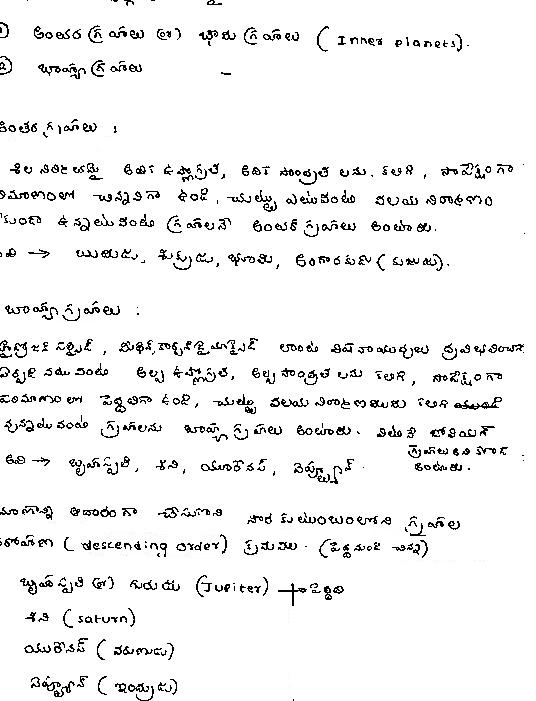 ① అంతర గ్రహాలు (లేదా) భూమి గ్రహాలు ( Inner planets).
② బాహ్య గ్రహాలు –
అంతర గ్రహాలు :
శిల నిర్మితమై అధిక ఉష్ణోగ్రత, అధిక సాంద్రత లను కలిగి, సాపేక్షంగా
పరిమాణంలో చిన్నవిగా ఉండి, చుట్టూ ఎటువంటి వలయ నిర్మాణం
లేకుండా ఉన్నటువంటి గ్రహాలనే అంతర గ్రహాలు అంటారు.
అవి → బుధుడు, శుక్రుడు, భూమి, అంగారకుడు ( కుజుడు).
బాహ్య గ్రహాలు :
హైడ్రోజన్ సల్ఫైడ్, మీథేన్, కార్బన్ డై ఆక్సైడ్ లాంటి విష వాయువులు ద్రవీభవించి
ఏర్పడి నటువంటి అల్ప ఉష్ణోగ్రత, అల్ప సాంద్రత లను కలిగి, సాపేక్షంగా
పరిమాణంలో పెద్దవిగా ఉండి, చుట్టూ వలయ నిర్మాణములు కలిగి
వున్నటువంటి గ్రహాలను బాహ్య గ్రహాలు అంటారు. వీటినే జోవియన్
గ్రహాలు అని కూడా అంటారు.
అవి → బృహస్పతి, శని, యురేనస్, నెప్ట్యూన్
పరిమాణాన్ని ఆధారంగా చేసుకొని సౌర కుటుంబంలోని గ్రహాల
అవరోహణ ( descending order) క్రమము. (పెద్దనుండి చిన్న)
బృహస్పతి (లేదా) గురుడు (Jupiter) → పెద్దది
శని ( saturn)
యురేనస్ ( వరుణుడు)
నెప్ట్యూన్ ( ఇంద్రుడు)